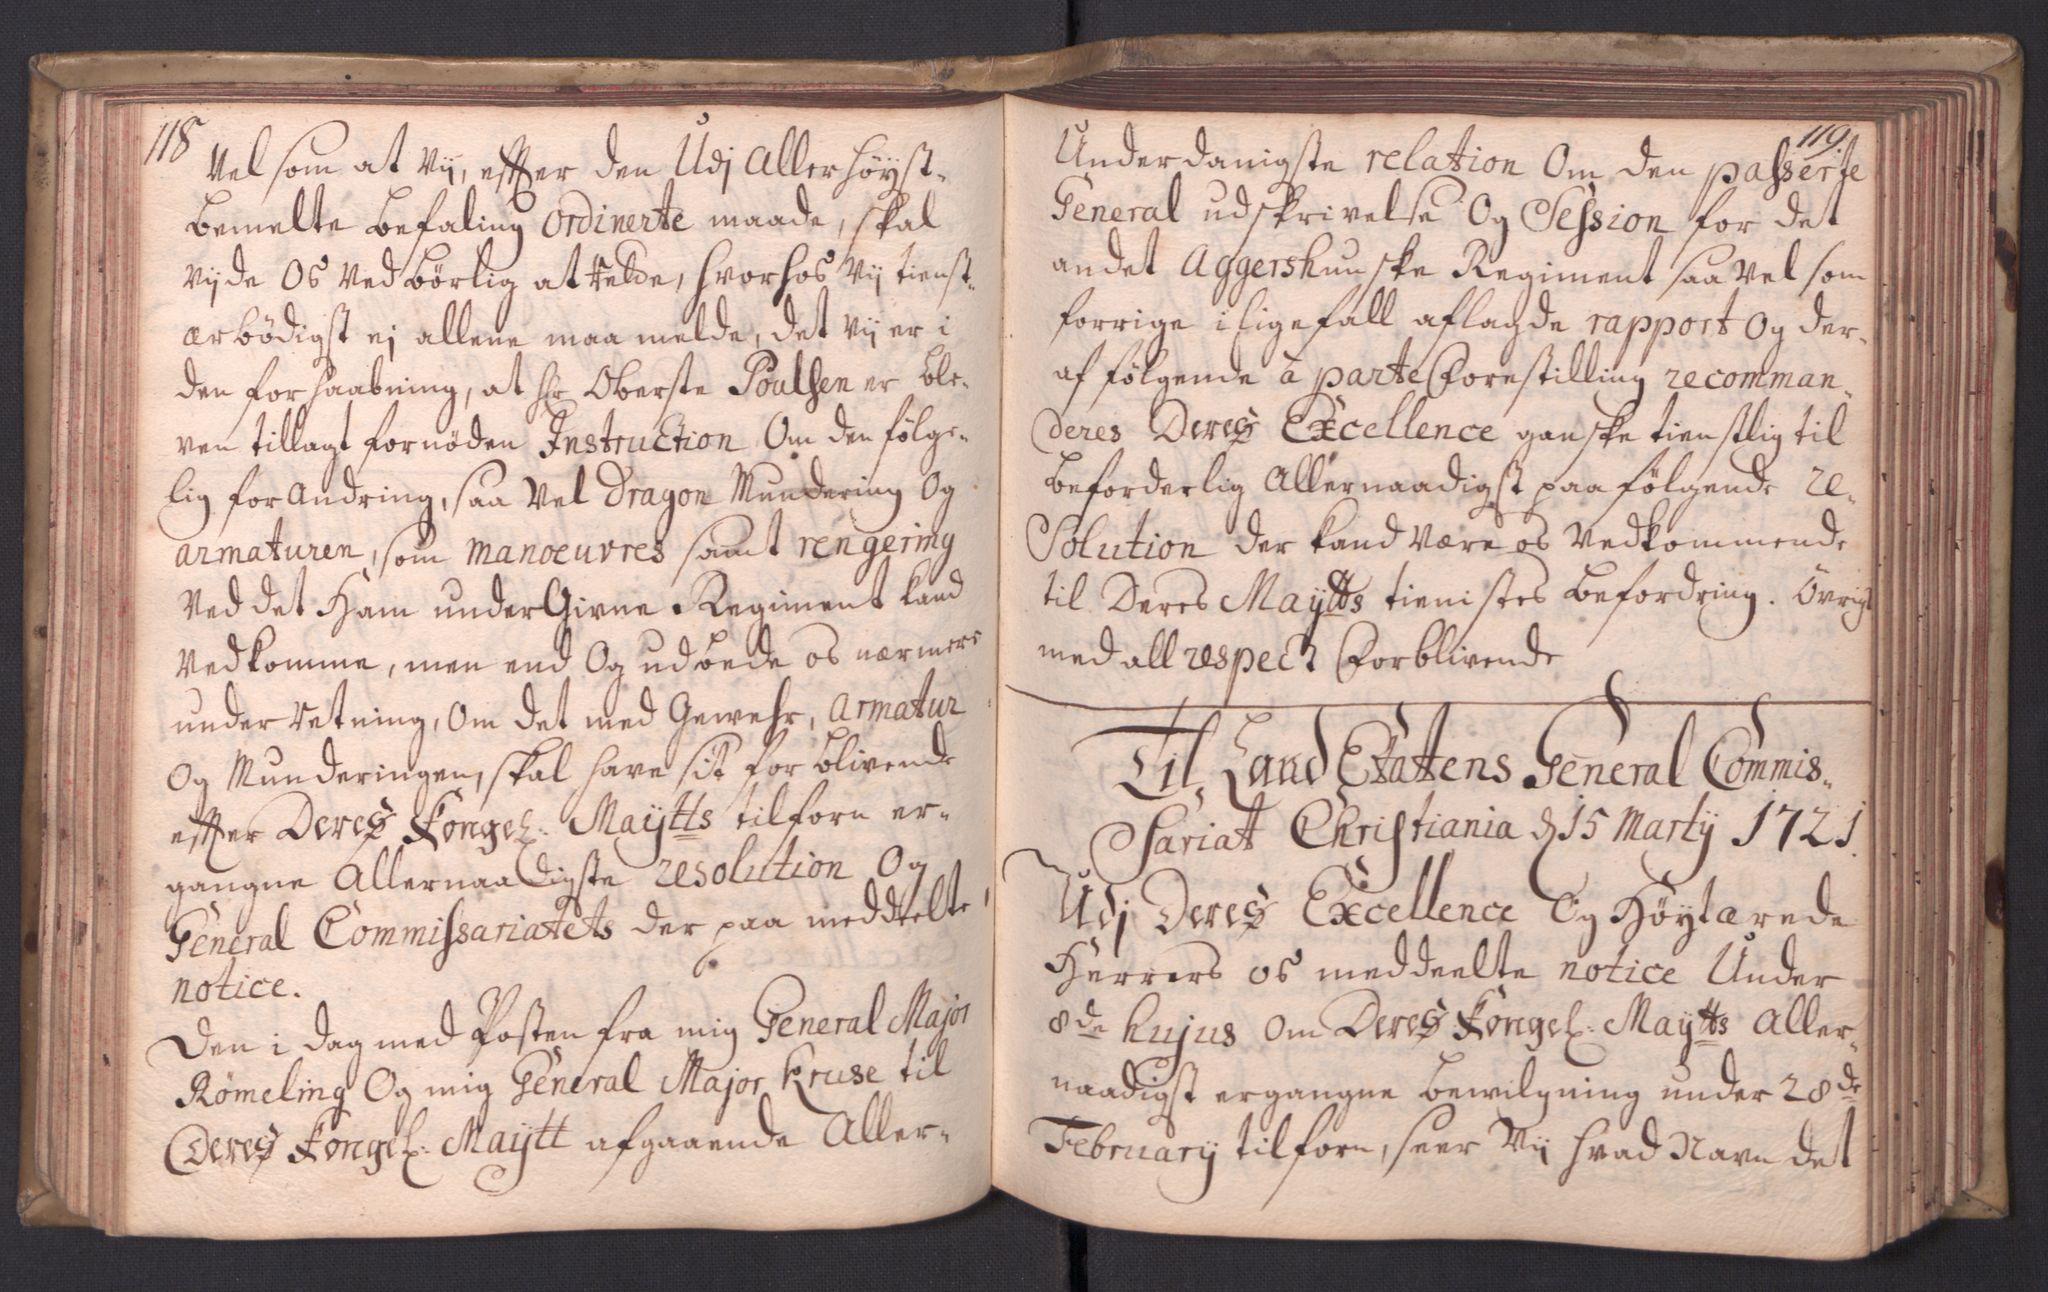 118
Vel som at Vij, efter den Udj Allerhöyst-
bemelte befaling ordinerte maade, skal
vijde Os Ved börlig at stelde, hvorhos Vij tienst-
ærbödigst ej allene maa melde, det Vij er i
den forhaabning, at hr Oberste Poulsen er ble-
ven tillagt fornöden Instruction Om den fölge-
lig forAndring, saa Vel Dragon Mundering Og
armaturen, som manoeuvres samt rengering
Ved det Ham underGivne Regiment kand
Vedkomme, men end Og udbede os nærmere
underretning, Om det med Gewehr, Armatur
Og Munderingen, skal have sit forblivende
efter Deres Kongel: Maytts tilforn er-
gangne Allernaadigste resolution Og
General Commissariatets der paa meddeelte
notice.
Den i dag med Posten fra mig General Major
Römeling Og mig General Major Kruse til
Deres Kongel: Maytt afgaaende Aller-
119.
Underdanigste relation Om den passerte
General udskrivelse Og Session for det
andet Aggershuuske Regiment saa Vel som
forrige i ligefall aflagde rapport Og der-
af fölgende à parte forestilling recomman-
deres Deres Excellence ganske tienstlig til
beforderlig Allernaadigst paafölgende re-
Solution der kand være os Vedkommende
til Deres Maytts tienistes befordring. Övrigt
med all respect forblivende
Til Land Etattens General Commis-
Sariatt Christiania d 15 Martij 1721.
Udj Deres Excellence Og Höytærede
Herrers os meddeelte notice Under
8de hujus Om Deres Kongel: Maytts Aller-
naadigst ergangne bewilgning under 28de
February tilforn, seer Vij hvad Navn det